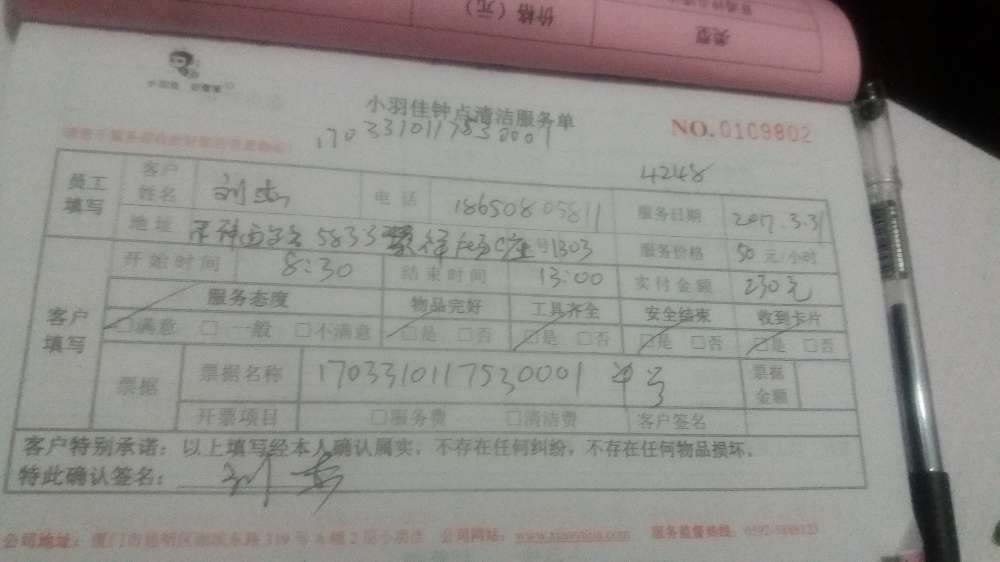 价格（元）
类型
小羽佳
小羽佳钟点清洁服务单
NO.0109802
1703310117530001
4248
员工填写 客户姓名 电话 18650805811 服务日期 2017.3.31
地址 5833 C座 号1303 服务价格 50元/小时
开始时间 8:30 结束时间 13:00 实付金额 230元
客户填写 服务态度 物品完好 工具齐全 安全结束 收到卡片
□满意 □一般 □不满意 □是 □否 □是 □否 □是 □否 □是 □否
票据 票据名称 1703310117530001 票据金额
开票项目 □服务费 □清洁费 客户签名
客户特别承诺：以上填写经本人确认属实，不存在任何纠纷，不存在任何物品损坏。
特此确认签名：
公司地址：厦门市思明区湖滨东路319号A幢2层小羽佳 公司网站： 服务监督热线：